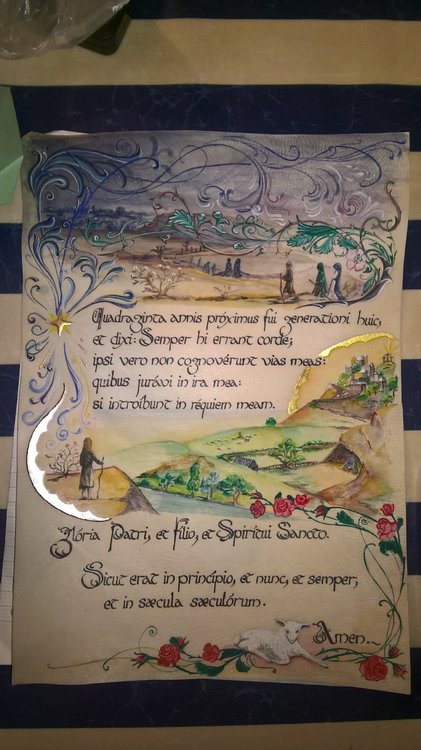 Quadraginta annis próximus fui generationi huic,
et dixi: Semper hi errant corde;
ipsi vero non cognovérunt vias meas:
quibus jurávi in ira mea:
si introíbunt in réquiem meam.
Glória Patri, et Fílio, et Spirítui Sancto.
Sicut erat in princípio, et nunc, et semper,
et in sæcula sæculórum.
Amen.~